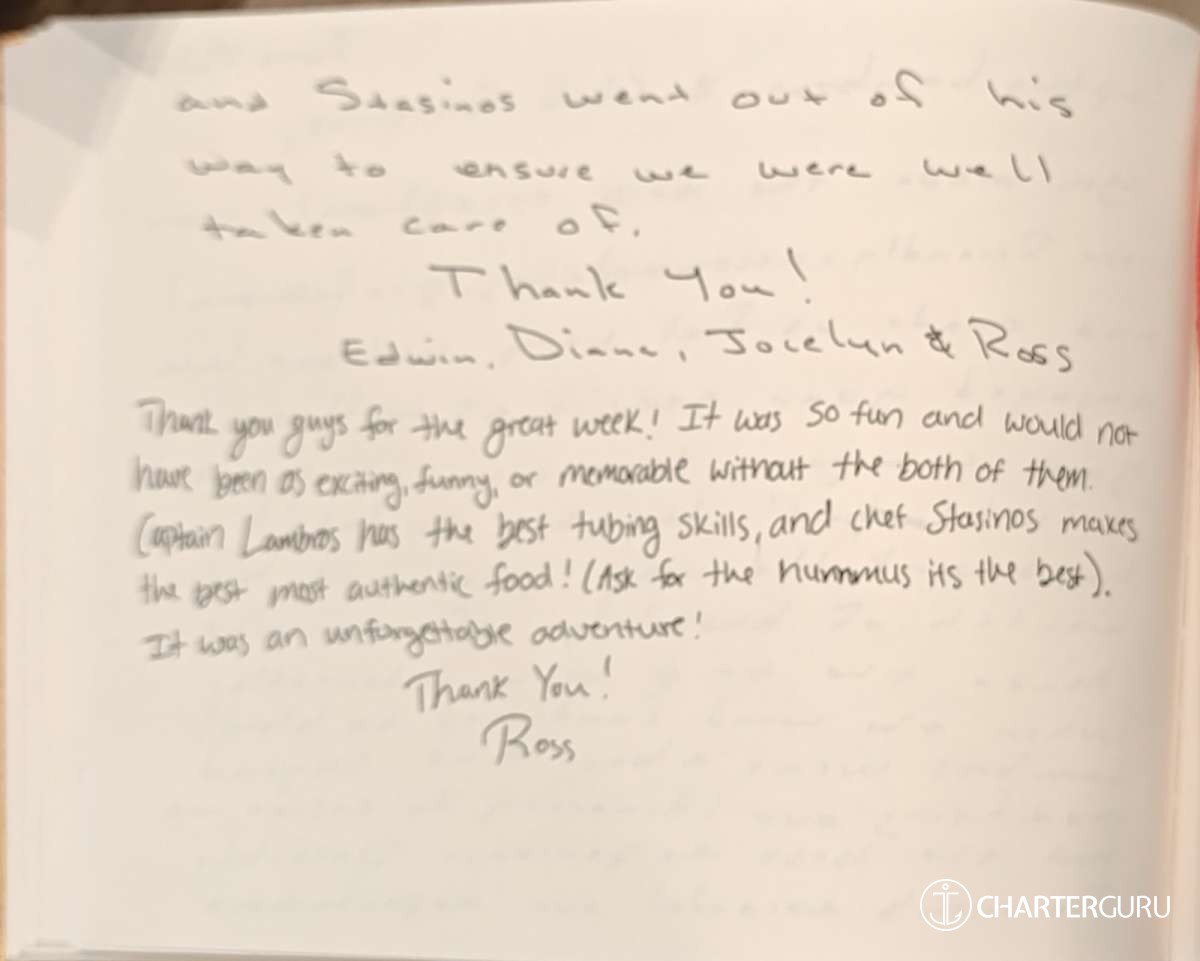 and Stasinos went out of his
way to ensure we were well
taken care of.
Thank You!
Edwin, Diane, Jocelyn & Ross
Thank you guys for the great week! It was so fun and would not
have been as exciting, funny, or memorable without the both of them.
Captain Lambros has the best tubing skills, and chef Stasinos makes
the best most authentic food! (Ask for the hummus its the best).
It was an unforgettable adventure!
Thank You!
Ross
CHARTERGURU